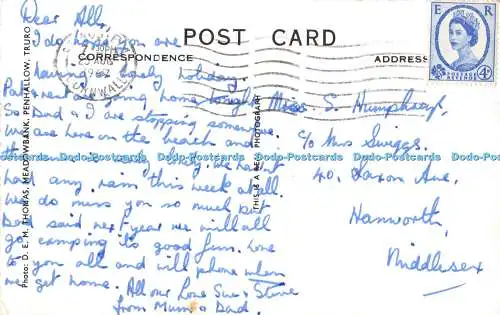 Dear All,
I do hope you are
having a lovely holiday.
Pat &
going home tonight
So Dad & I are stopping somewhere.
We are here on the beach and
the
lovely. We havent
had any rain this week at all.
We do miss you so much but
Dad said next year we will all
go camping its good fun. Love
to you all and will phone when
we get home. All our Love Sue & Steve
from Mum & Dad.
POST CARD
CORRESPONDENCE
ADDRESS
Miss S. Humphreys,
c/o Mrs Swiggs.
40. Saxon Ave,
Hanworth,
Middlesex
Photo: D. E. M. THOMAS, MEADOWBANK, PENHALLOW, TRURO
THIS IS A REAL PHOTOGRAPH
E R
POSTAGE
REVENUE
4D
7 30PM
AUG
1962
CORNWALL
Dodo-Postcards.com Dodo-Postcards.com Dodo-Postcards.com Dodo-Postcards.com Dodo-Postcards.com